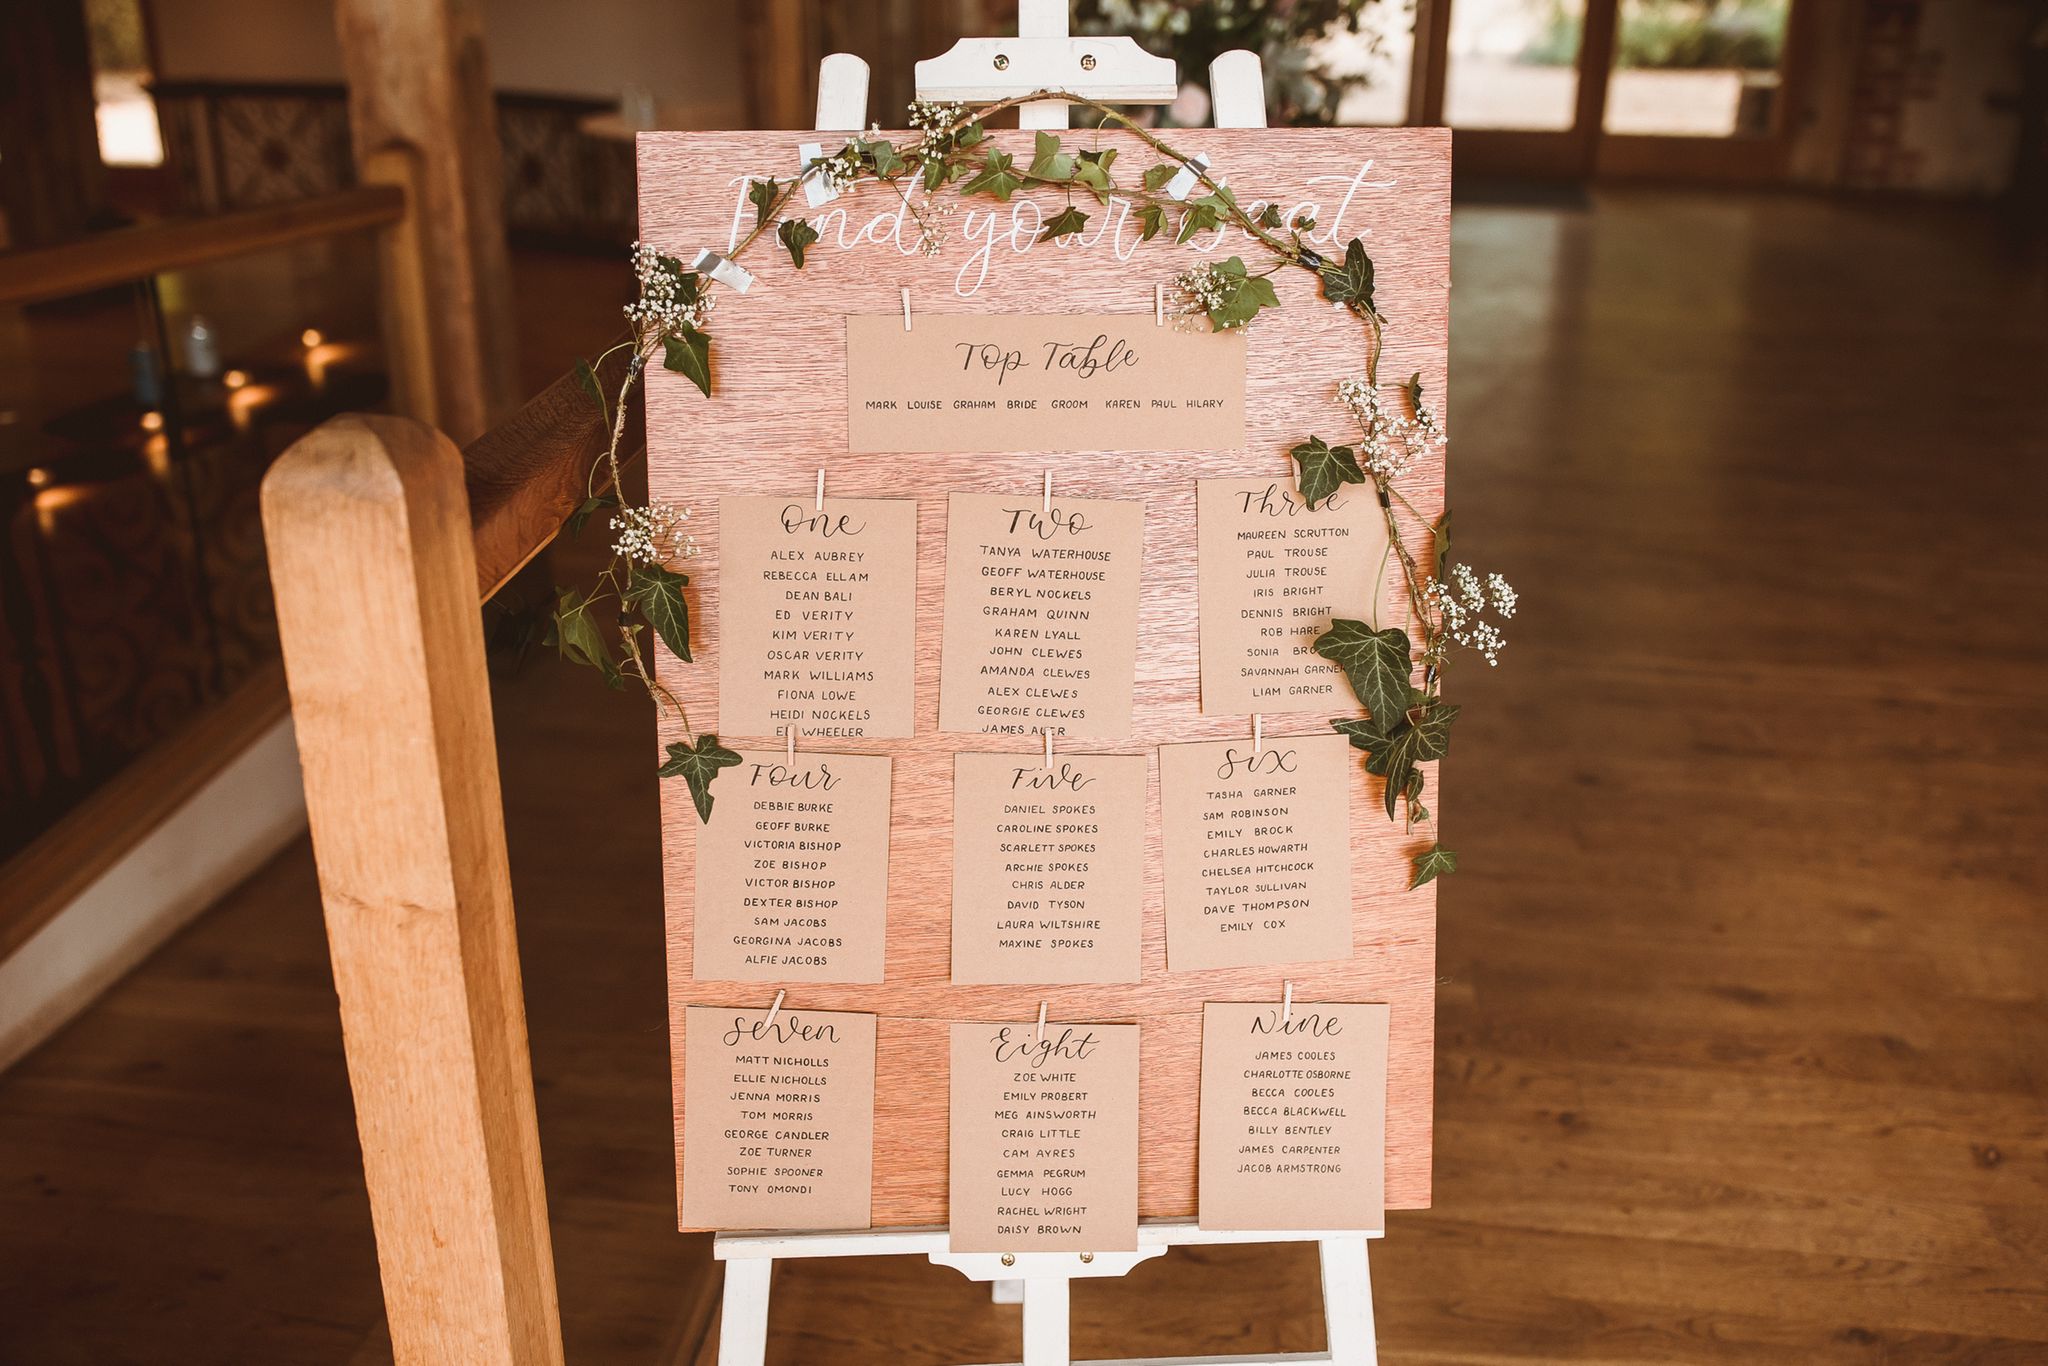 Find your Seat
Top Table
MARK LOUISE GRAHAM BRIDE GROOM KAREN PAUL HILARY
One
ALEX AUBREY
REBECCA ELLAM
DEAN BALI
ED VERITY
KIM VERITY
OSCAR VERITY
MARK WILLIAMS
FIONA LOWE
HEIDI NOCKELS
ED WHEELER
Two
TANYA WATERHOUSE
GEOFF WATERHOUSE
BERYL NOCKELS
GRAHAM QUINN
KAREN LYALL
JOHN CLEWES
AMANDA CLEWES
ALEX CLEWES
GEORGIE CLEWES
JAMES
Three
MAUREEN SCRUTTON
PAUL TROUSE
JULIA TROUSE
IRIS BRIGHT
DENNIS BRIGHT
ROB HARE
SONIA
SAVANNAH GARNER
LIAM GARNER
Four
DEBBIE BURKE
GEOFF BURKE
VICTORIA BISHOP
ZOE BISHOP
VICTOR BISHOP
DEXTER BISHOP
SAM JACOBS
GEORGINA JACOBS
ALFIE JACOBS
Five
DANIEL SPOKES
CAROLINE SPOKES
SCARLETT SPOKES
ARCHIE SPOKES
CHRIS ALDER
DAVID TYSON
LAURA WILTSHIRE
MAXINE SPOKES
Six
TASHA GARNER
SAM ROBINSON
EMILY BROCK
CHARLES HOWARTH
CHELSEA HITCHCOCK
TAYLOR SULLIVAN
DAVE THOMPSON
EMILY COX
Seven
MATT NICHOLLS
ELLIE NICHOLLS
JENNA MORRIS
TOM MORRIS
GEORGE CANDLER
ZOE TURNER
SOPHIE SPOONER
TONY OMONDI
Eight
ZOE WHITE
EMILY PROBERT
MEG AINSWORTH
CRAIG LITTLE
CAM AYRES
GEMMA PEGRUM
LUCY HOGG
RACHEL WRIGHT
DAISY BROWN
Nine
JAMES COOLES
CHARLOTTE OSBORNE
BECCA COOLES
BECCA BLACKWELL
BILLY BENTLEY
JAMES CARPENTER
JACOB ARMSTRONG